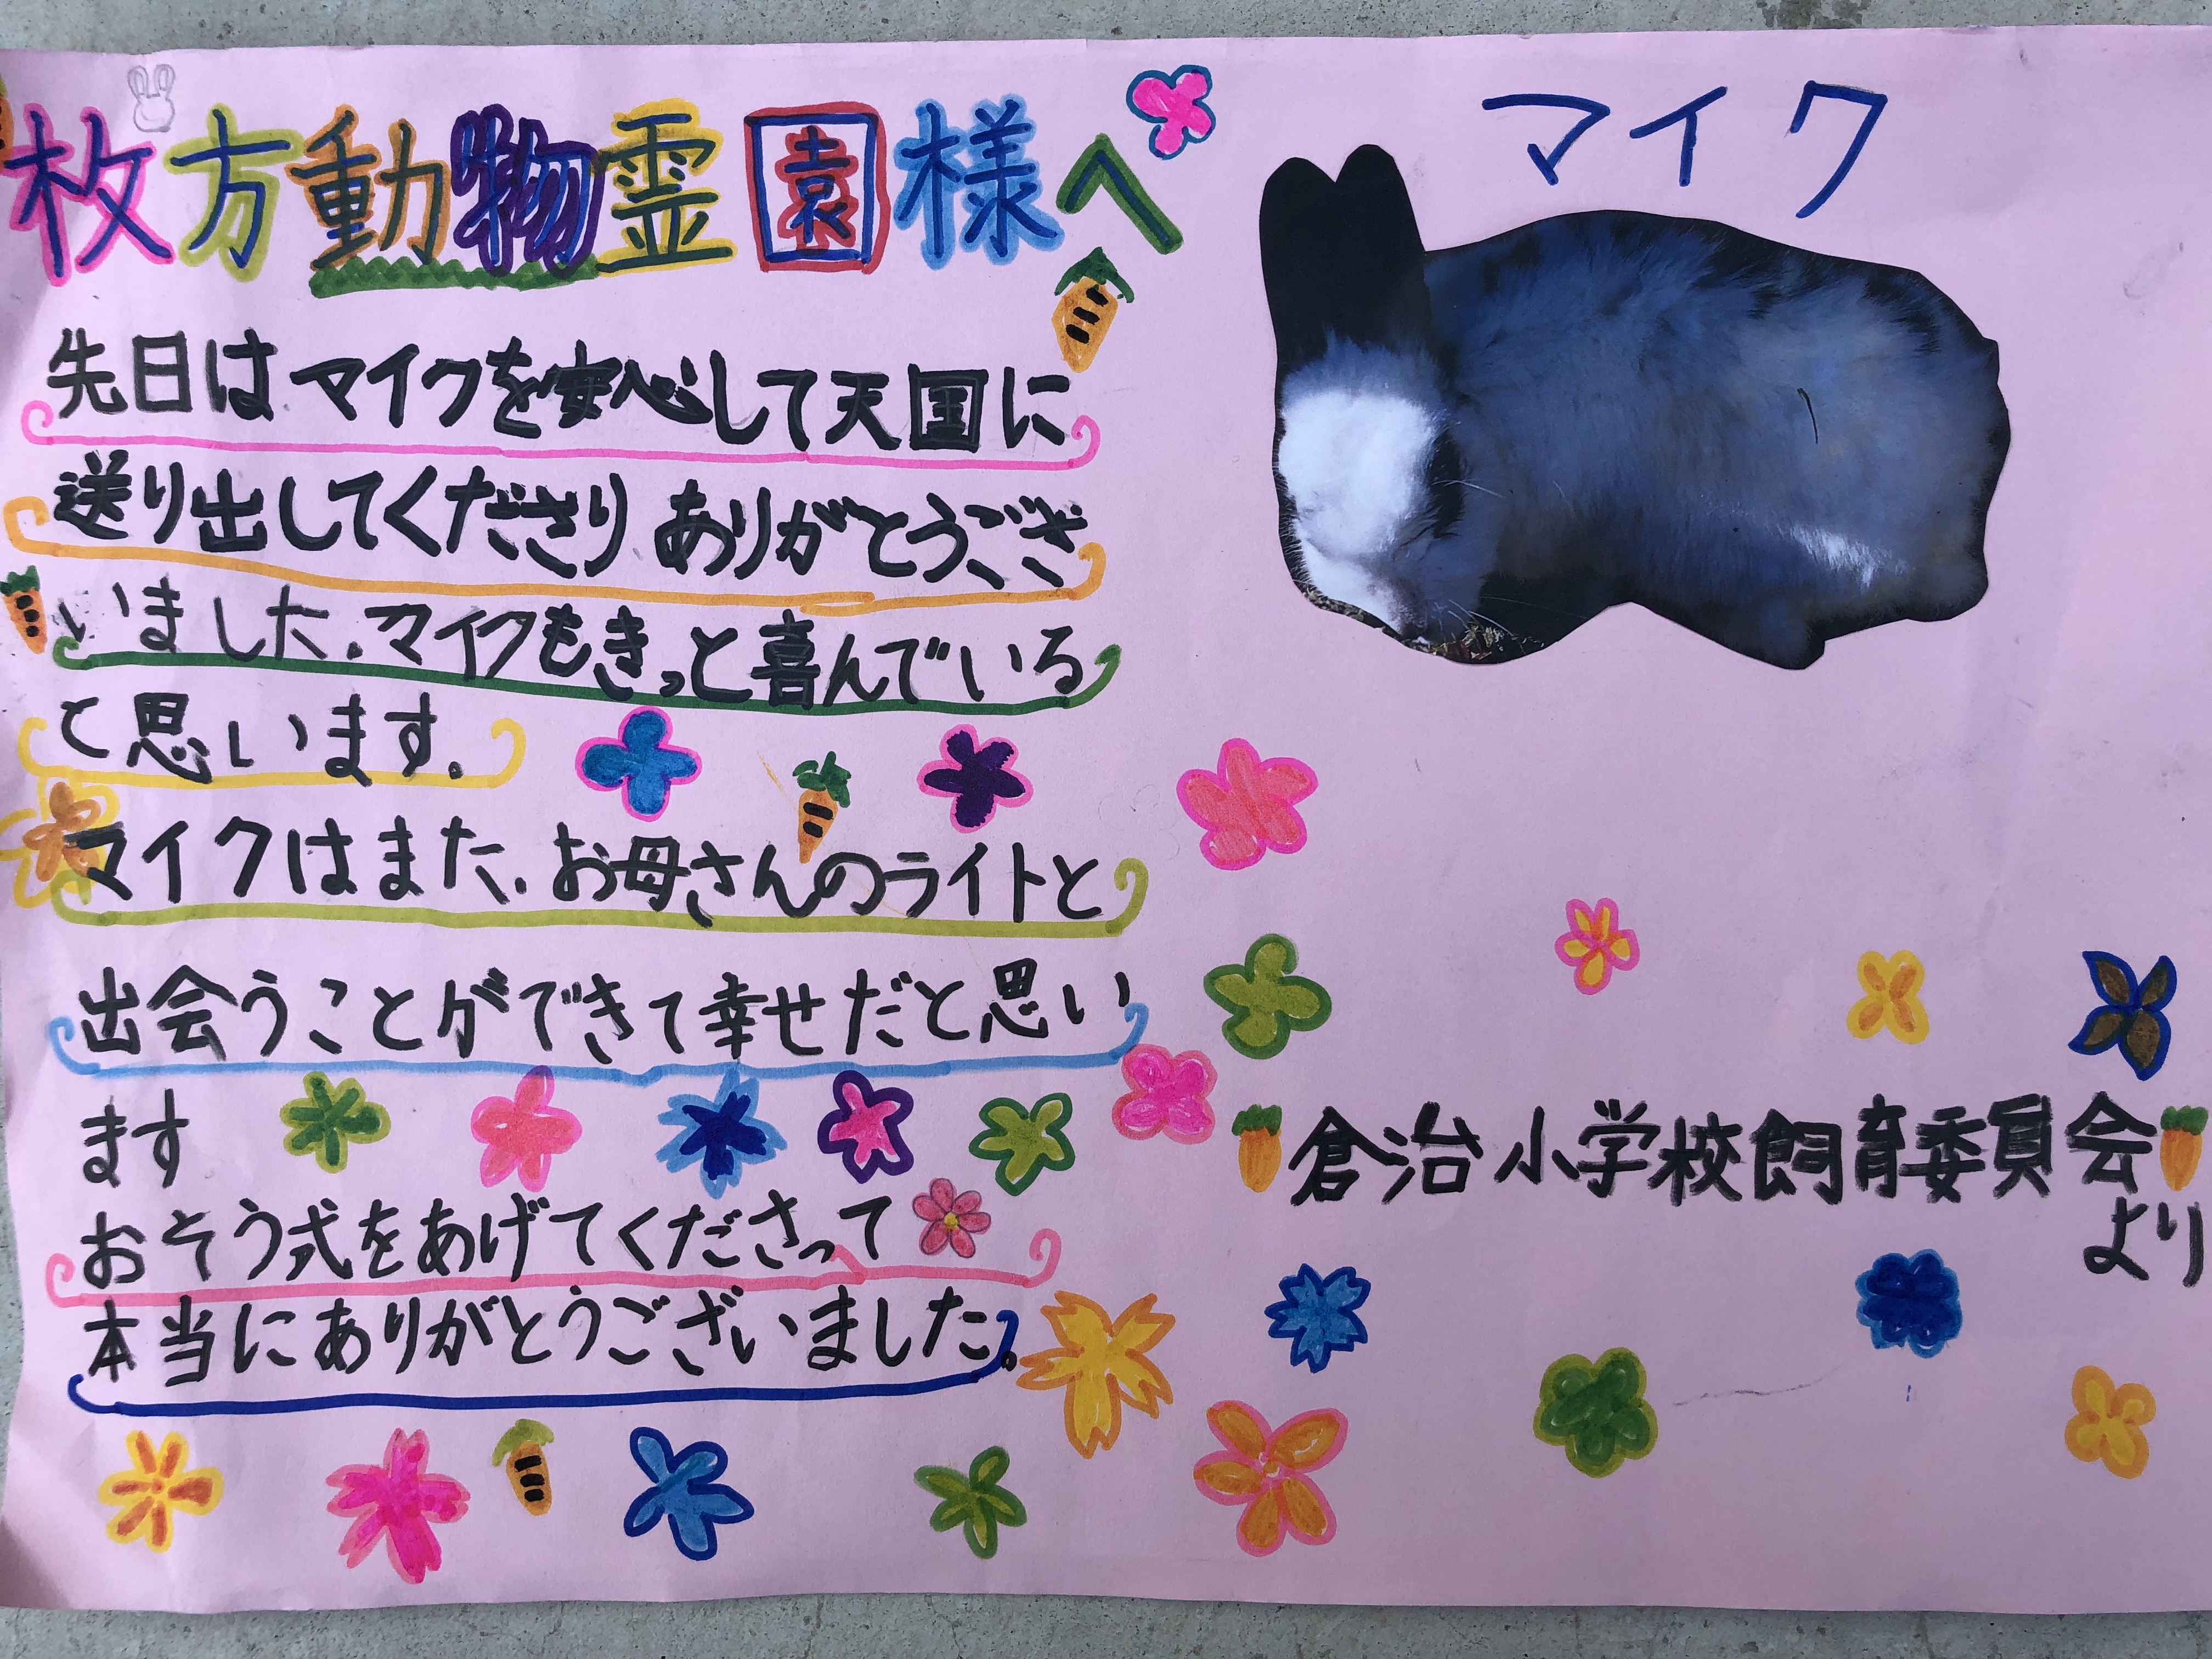 枚方動物霊園様へ
先日はマイクを安心して天国に
送り出してくださり ありがとうござ
いました.マイクもきっと喜んでいる
と思います.
マイクはまた.お母さんのライトと
出会うことができて幸せだと思い
ます
おそう式をあげてくださって
本当にありがとうございました。
マイク
倉治小学校飼育委員会
より